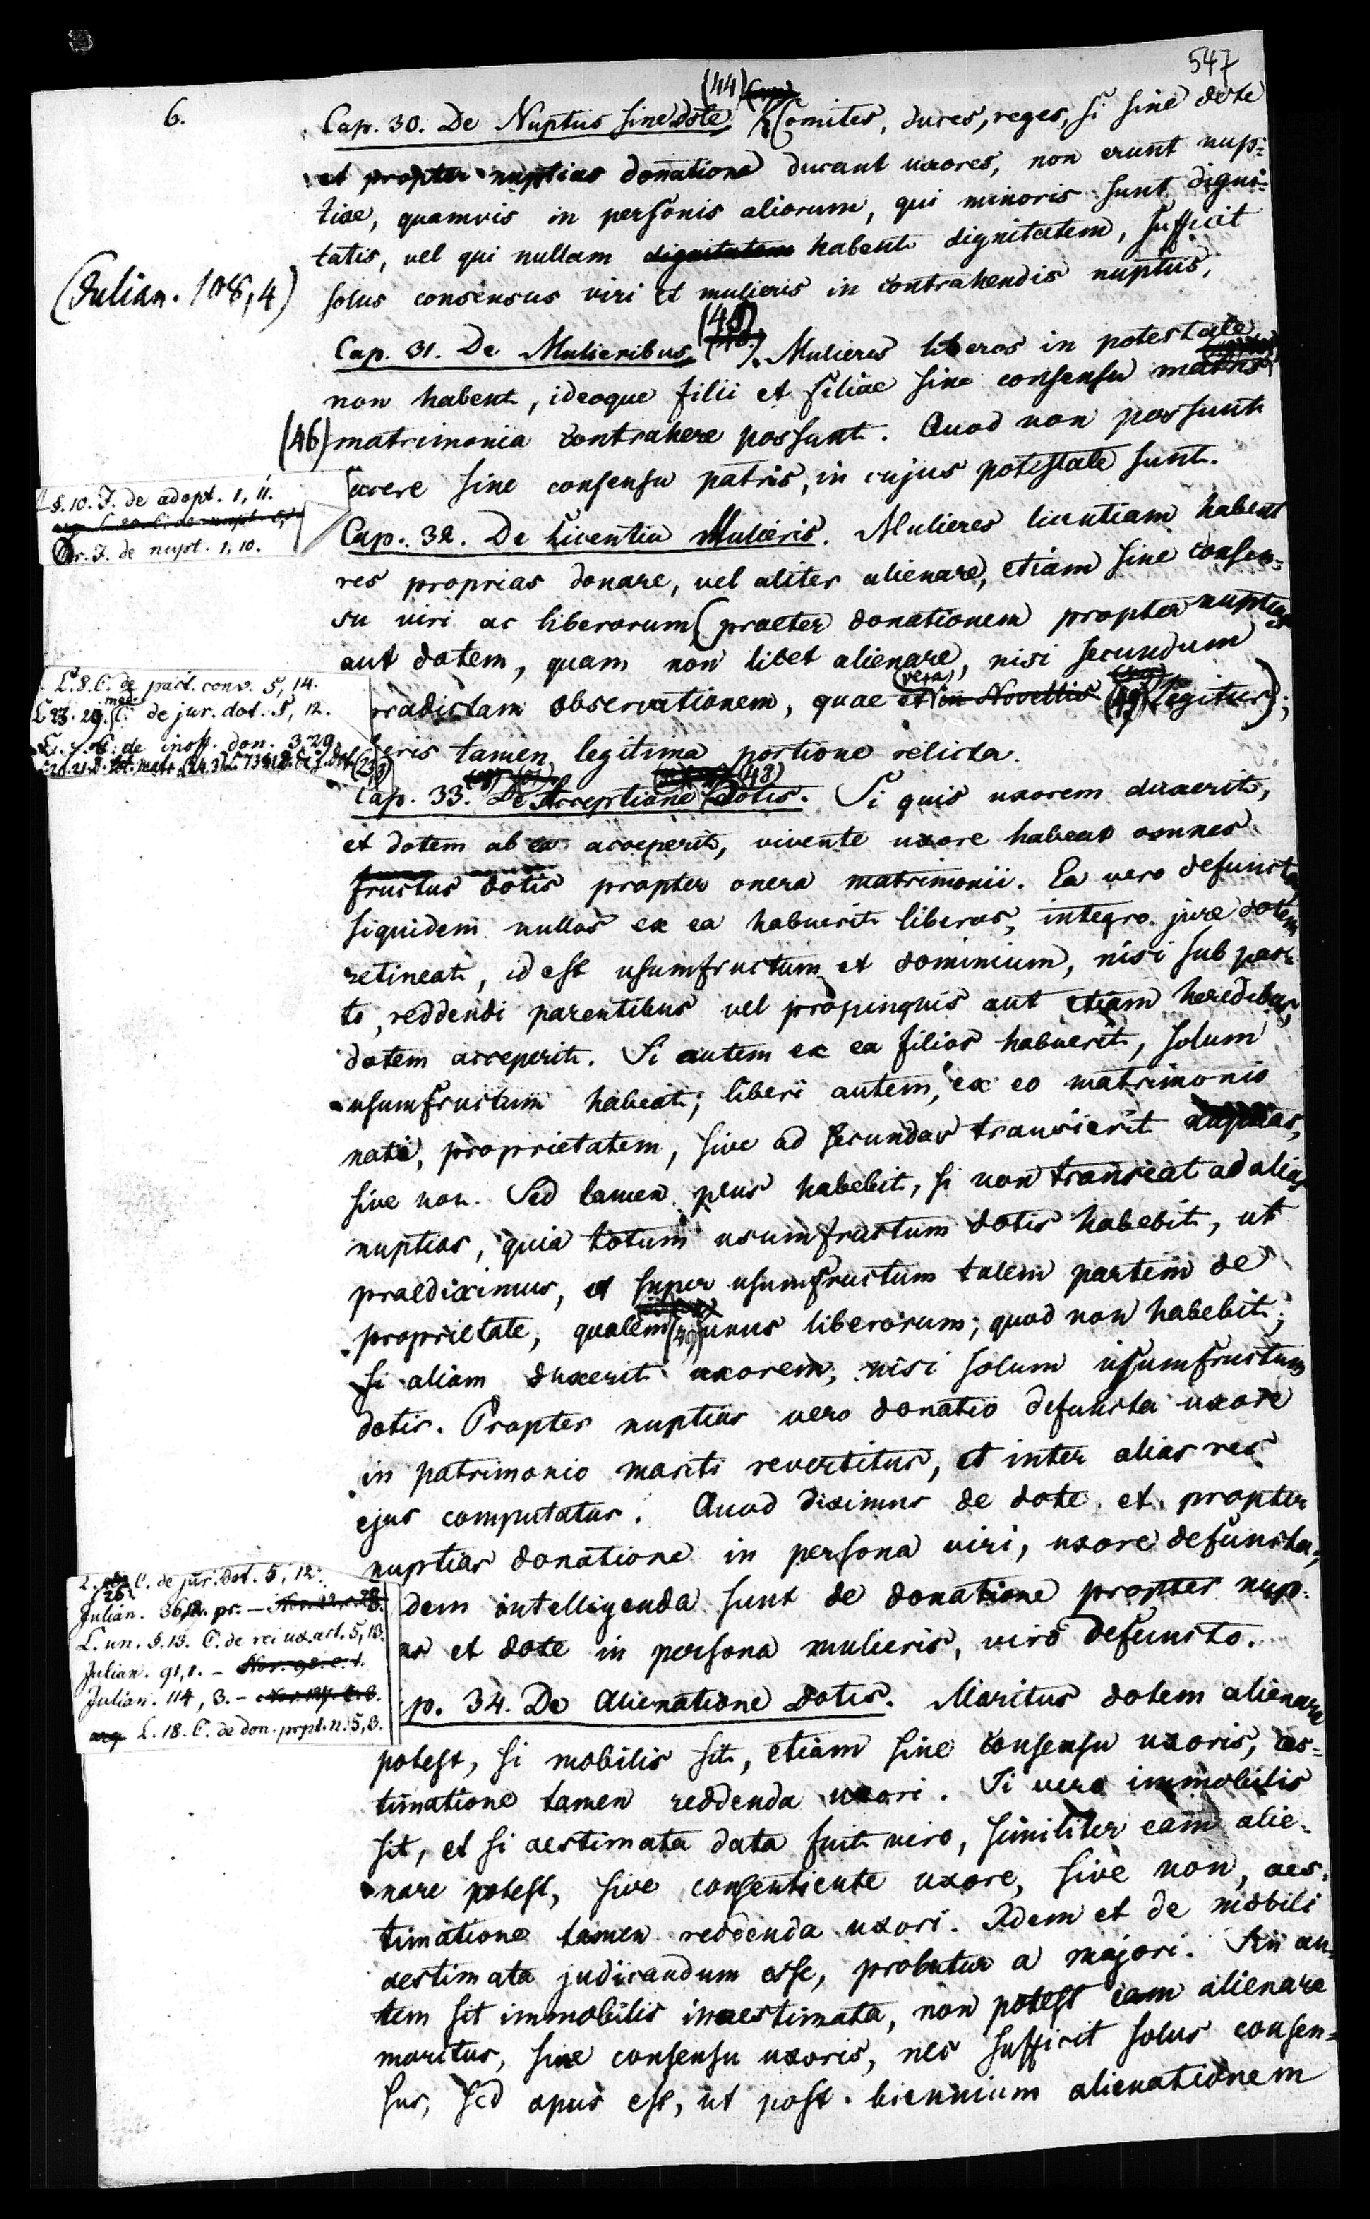 547
6.
Cap. 30. De Nuptiis sine dote (44) Comites, duces, reges, si sine dote
et propter nuptias donatione ducant uxores, non erunt nup=
tiae, quamvis in personis aliorum, qui minoris sunt digni=
tatis, vel qui nullam dignitatem habent dignitatem, sufficit
(Julian. 108,4)
solus consensus viri et mulieris in contrahendis nuptiis.
Cap. 31. De Mulieribus (45). Mulieres liberos in potestate
non habent, ideoque filii et filiae sine consensu matris
(46) matrimonia contrahere possunt. Quod non possunt
facere sine consensu patris, in cujus potestate sunt.
§. 10. J. de adopt. 1, 11.
pr. J. de nupt. 1, 10.
Cap. 32. De Licentia Mulieris. Mulieres licentiam habent
res proprias donare, vel aliter alienare, etiam sine consen=
su viri ac liberorum (praeter donationem propter nuptias
aut dotem, quam non licet alienare, nisi secundum
praedictam observationem, quae et in Novellis (47) legitur);
liberis tamen legitima portione relicta.
L. 8. C. de pact. conv. 5, 14.
L. 29. C. de jur. dot. 5, 12.
C. de inoff. don. 3, 29.
Cap. 33. De Acceptione Dotis. (48) Si quis uxorem duxerit,
et dotem ab ea acceperit, vivente uxore habeat omnes
fructus dotis propter onera matrimonii. Ea vero defuncta
siquidem nullos ex ea habuerit liberos, integro jure dotem
retineat, id est usumfructum et dominium, nisi sub pac=
to, reddendi parentibus vel propinquis aut etiam heredibus,
dotem acceperit. Si autem ex ea filios habuerit, solum
usumfructum habeat; liberi autem, ex eo matrimonio
nati, proprietatem, sive ad secundas transierit nuptias,
sive non. Sed tamen plus habebit, si non transeat ad alias
nuptias, quia totum usumfructum dotis habebit, ut
praediximus, et super usumfructum talem partem de
proprietate, qualem (49) unus liberorum; quod non habebit,
si aliam duxerit uxorem, nisi solum usumfructum
dotis. Propter nuptias vero donatio defuncta uxore
in patrimonio mariti revertitur, et inter alias res
ejus computatur. Quod diximus de dote et propter
nuptias donatione in persona viri, uxore defuncta,
dem intelligenda sunt de donatione propter nup=
as et dote in persona mulieris, viro defuncto.
L. 26. C. de jur. dot. 5, 12.
Julian. 36, 2. pr. — Nov. 22. c. 28.
L. un. §. 13. C. de rei ux. act. 5, 13.
Julian. 91, 1. — Nov. 98. c. 1.
Julian. 114, 3. — Nov. 127. c. 3.
arg. L. 18. C. de don. prpt. n. 5, 3.
p. 34. De Alienatione Dotis. Maritus dotem alienare
potest, si mobilis sit, etiam sine consensu uxoris, aes=
timatione tamen reddenda uxori. Si vero immobilis
sit, et si aestimata data fuit viro, similiter eam alie=
nare potest, sive consentiente uxore, sive non, aes=
timatione tamen reddenda uxori. Idem et de mobili
aestimata judicandum esse, probatur a majori. Sin au=
tem sit immobilis inaestimata, non potest eam alienare
maritus, sine consensu uxoris, nec sufficit solus consen=
sus, sed opus est, ut post biennium alienationem